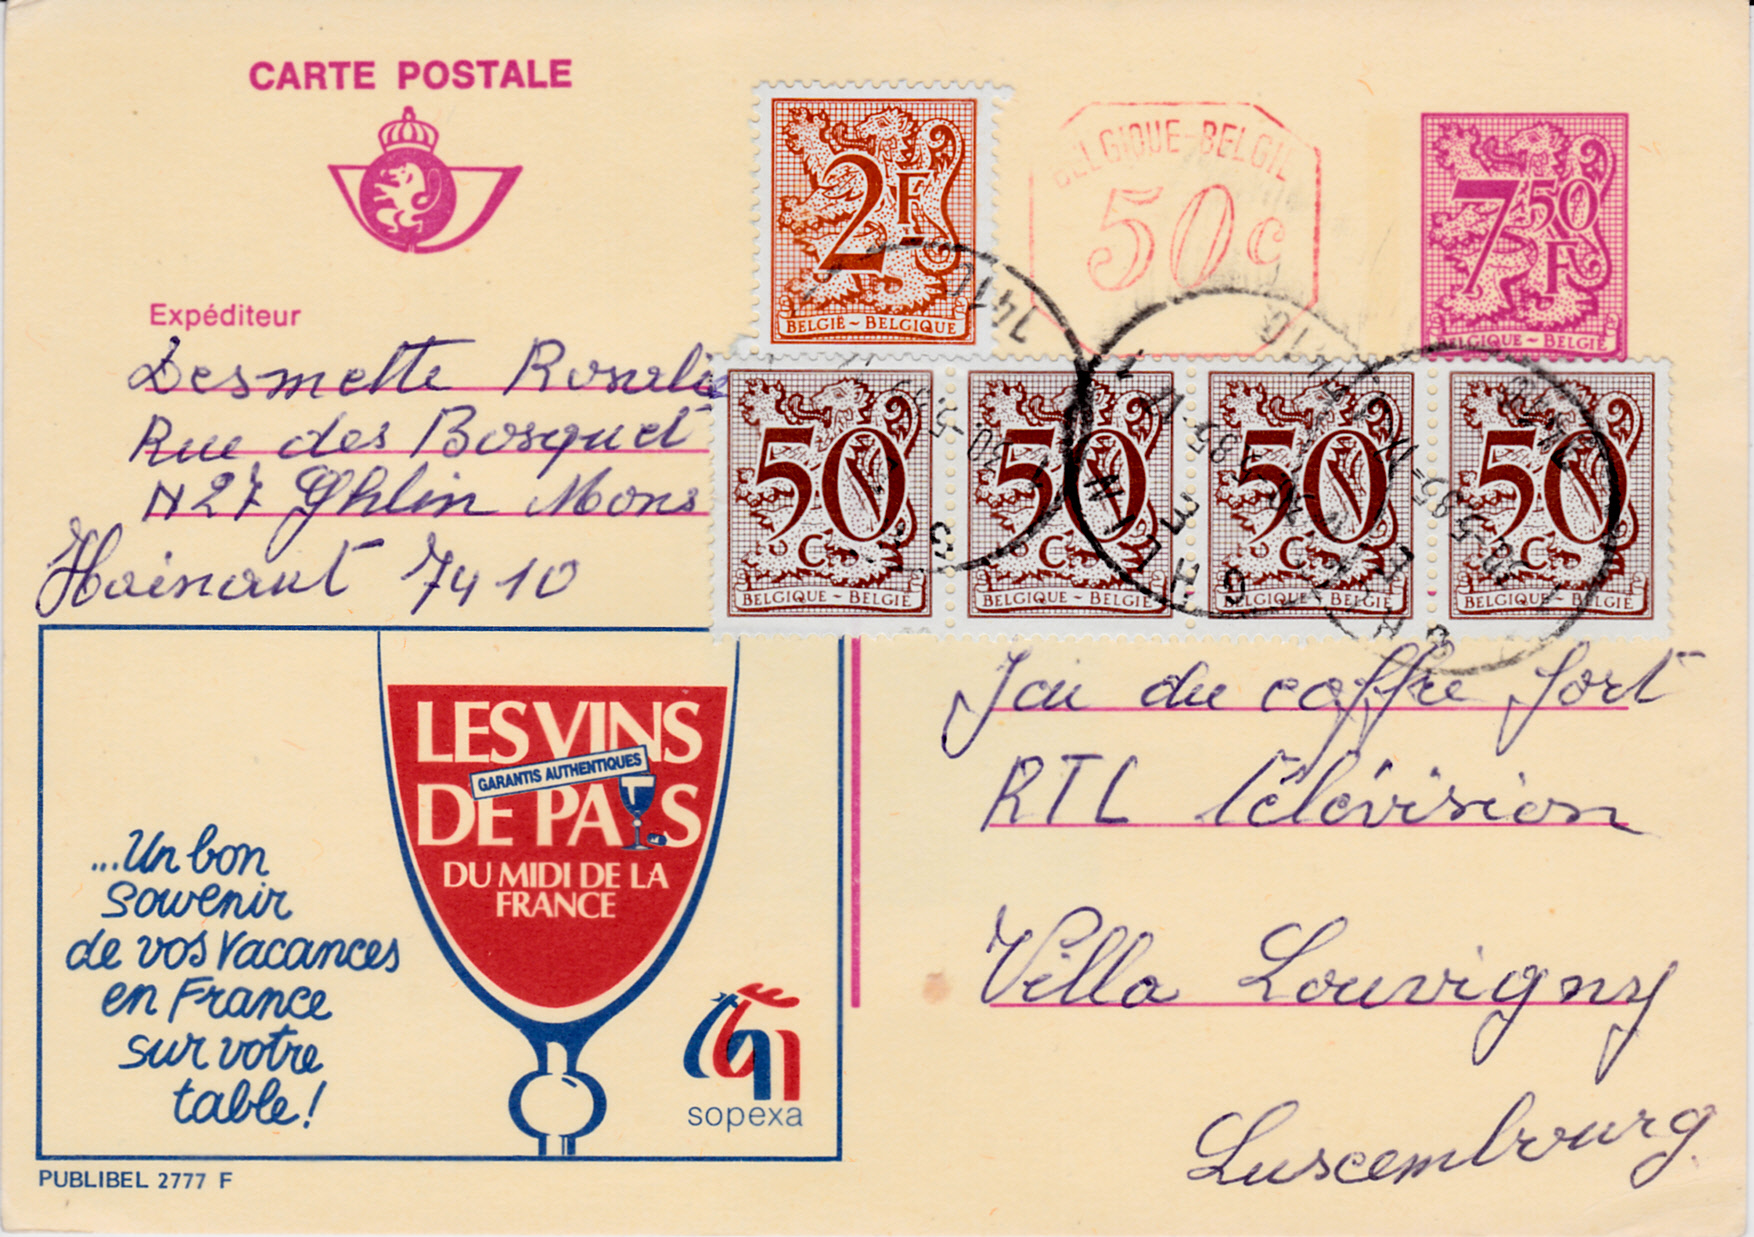 CARTE POSTALE
2F
BELGIË ~ BELGIQUE
BELGIQUE-BELGIË
50c
750F
BELGIQUE - BELGIË
Expéditeur
Desmette Rosalie
Rue des Bosquet
N27 Ghlin Mons
Hainaut 7410
50 C
BELGIQUE ~ BELGIË
50 C
BELGIQUE ~ BELGIË
50 C
BELGIQUE ~ BELGIË
50 C
BELGIQUE ~ BELGIË
GHLIN
LES VINS
GARANTIS AUTHENTIQUES
DE PAYS
DU MIDI DE LA
FRANCE
...Un bon
souvenir
de vos vacances
en France
sur votre
table!
sopexa
PUBLIBEL 2777 F
Jai du coffre fort
RTL Télévision
Villa Louvigny
Luscembourg